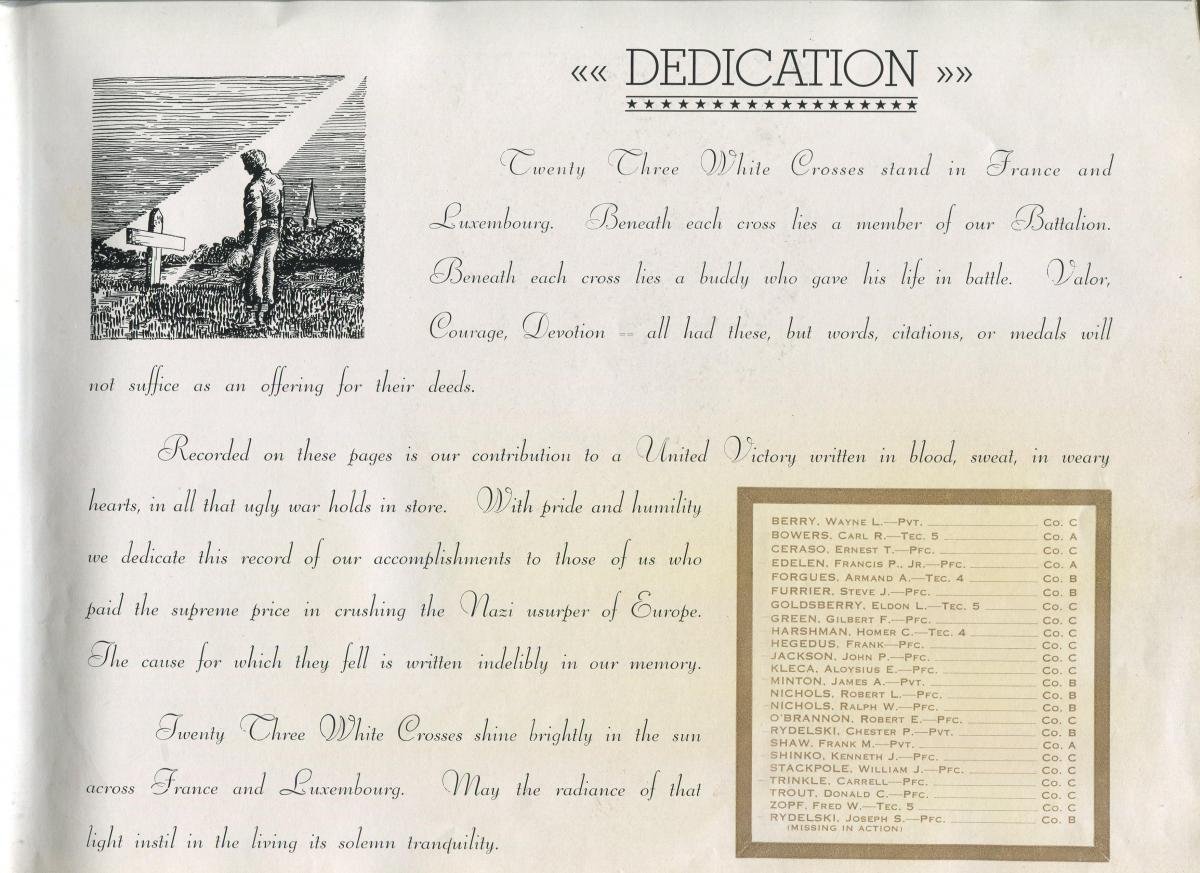 «« DEDICATION »»
Twenty Three White Crosses stand in France and
Luxembourg. Beneath each cross lies a member of our Battalion.
Beneath each cross lies a buddy who gave his life in battle. Valor,
Courage, Devotion -- all had these, but words, citations, or medals will
not suffice as an offering for their deeds.
Recorded on these pages is our contribution to a United Victory written in blood, sweat, in weary
hearts, in all that ugly war holds in store. With pride and humility
we dedicate this record of our accomplishments to those of us who
paid the supreme price in crushing the Nazi usurper of Europe.
The cause for which they fell is written indelibly in our memory.
Twenty Three White Crosses shine brightly in the sun
across France and Luxembourg. May the radiance of that
light instil in the living its solemn tranquility.
BERRY, WAYNE L.—PVT. CO. C
BOWERS, CARL R.—TEC. 5 CO. A
CERASO, ERNEST T.—PFC. CO. C
EDELEN, FRANCIS P., JR.—PFC. CO. A
FORGUES, ARMAND A.—TEC. 4 CO. B
FURRIER, STEVE J.—PFC. CO. B
GOLDSBERRY, ELDON L.—TEC. 5 CO. C
GREEN, GILBERT F.—PFC. CO. C
HARSHMAN, HOMER C.—TEC. 4 CO. C
HEGEDUS, FRANK—PFC. CO. C
JACKSON, JOHN P.—PFC. CO. C
KLECA, ALOYSIUS E.—PFC. CO. C
MINTON, JAMES A.—PVT. CO. B
NICHOLS, ROBERT L.—PFC. CO. B
NICHOLS, RALPH W.—PFC. CO. B
O'BRANNON, ROBERT E.—PFC. CO. C
RYDELSKI, CHESTER P.—PVT. CO. B
SHAW, FRANK M.—PVT. CO. A
SHINKO, KENNETH J.—PFC. CO. C
STACKPOLE, WILLIAM J.—PFC. CO. C
TRINKLE, CARRELL—PFC. CO. C
TROUT, DONALD C.—PFC. CO. C
ZOPF, FRED W.—TEC. 5 CO. C
RYDELSKI, JOSEPH S.—PFC. CO. B
(MISSING IN ACTION)